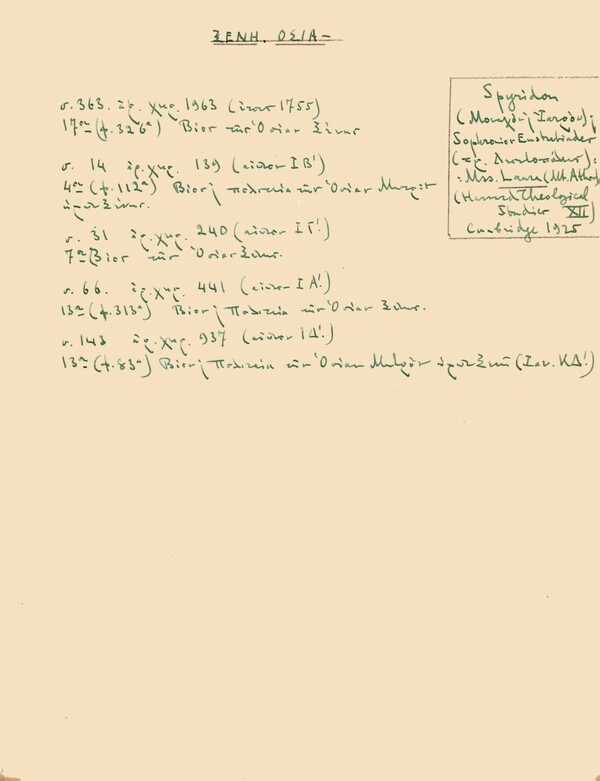 ΞΕΝΗ. ΟΣΙΑ -
σ. 363. ἀρ. χηρ. 1963 (ἔτους 1755)
17ον (φ. 326α) Βίος τῆς Ὁσίας Ξένης
σ. 14 ἀρ. χηρ. 139 (αἰῶνος ΙΒ!)
4ον (φ. 112α) Βίος ἡ πολιτεία τῆς Ὁσίας Μητρὸς
ἡμῶν Ξένης.
σ. 31 ἀρ. χηρ. 240 (αἰῶνος ΙΓ!)
7ον Βίος τῆς Ὁσίας Ξένης.
σ. 66. ἀρ. χηρ. 441 (αἰῶνος ΙΔ!)
13ον (φ. 313α) Βίος ἡ Πολιτεία τῆς Ὁσίας Ξένης.
σ. 143 ἀρ. χηρ. 937 (αἰῶνος ΙΔ!)
13ον (φ. 83α) Βίος ἡ Πολιτεία τῆς Ὁσίας Μητρὸς ἡμῶν Ξένης (Ιαν. ΚΔ!)
Spyridon
(Μοναχὸς Ἰατρὸς);
Sophronios Eustratiades
Mss. Laura (Mt. Athos)
(Harvard Theological
Studies XII)
Cambridge 1925